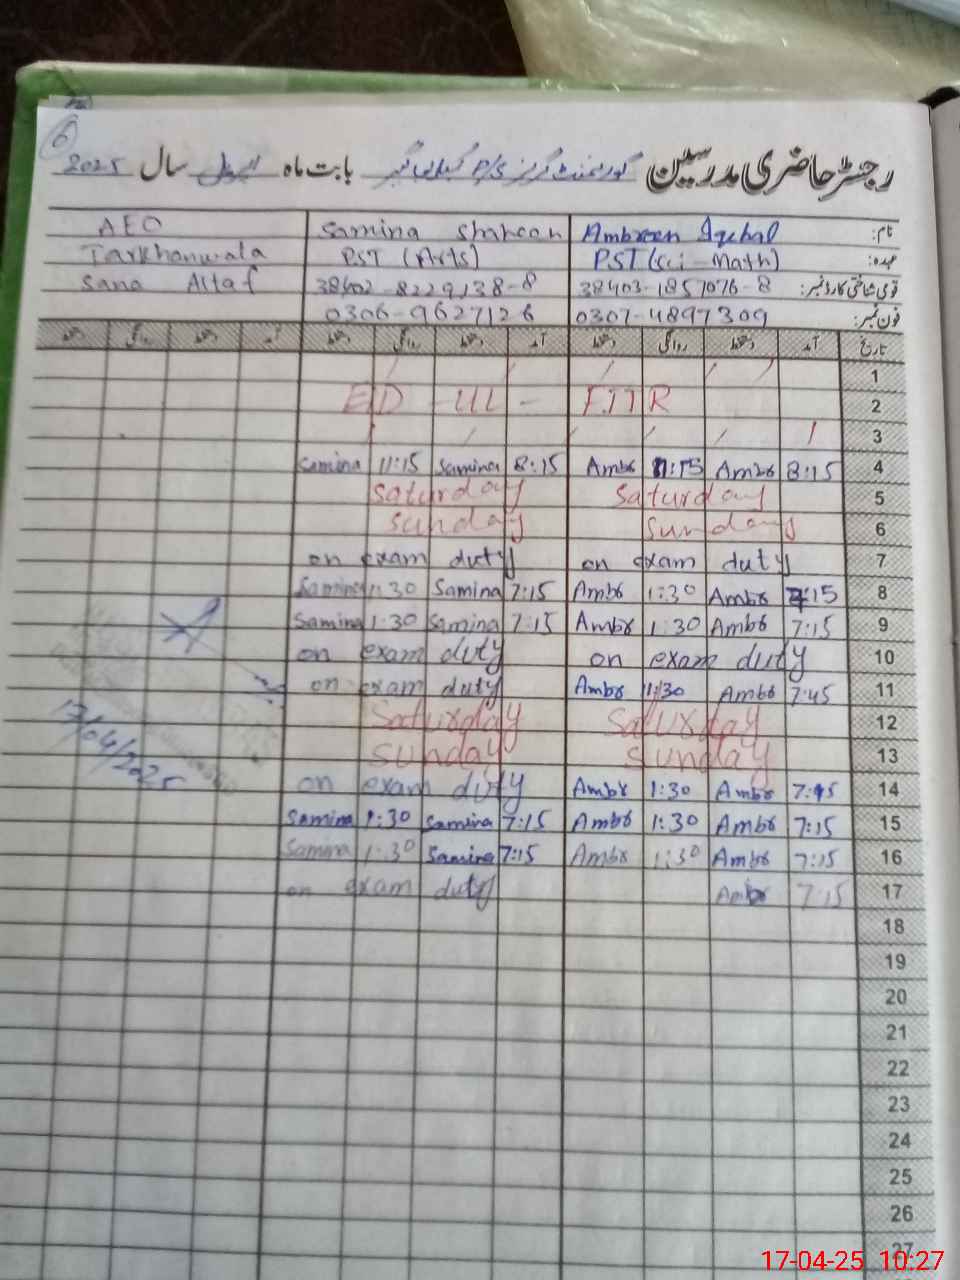 6
رجسٹر حاضری مدرسین گورنمنٹ گرلز P/S بابت ماہ اپریل سال 2025
نام: Ambreen Iqbal Samina Shaheen AEO
عہدہ: PST (Sci-Math) PST (Arts) Tarkhanwala
قومی شناختی کارڈ نمبر: 38403-1857076-8 38402-8229138-8 Sana Altaf
فون نمبر: 0307-4897309 0306-9627126
تاریخ آمد دستخط روانگی دستخط آمد دستخط روانگی دستخط آمد دستخط روانگی دستخط
1
EID - UL - FITR 2
3
Samina 11:15 Samina 8:15 Ambr 11:15 Ambr 8:15 4
Saturday Saturday 5
Sunday Sunday 6
on exam duty on exam duty 7
Samina 1:30 Samina 7:15 Ambr 1:30 Ambr 7:15 8
Samina 1:30 Samina 7:15 Ambr 1:30 Ambr 7:15 9
on exam duty on exam duty 10
on exam duty Ambr 1:30 Ambr 7:45 11
Saturday Saturday 12
Sunday Sunday 13
17/04/2025
on exam duty Ambr 1:30 Ambr 7:15 14
Samina 1:30 Samina 7:15 Ambr 1:30 Ambr 7:15 15
Samina 1:30 Samina 7:15 Ambr 1:30 Ambr 7:15 16
on exam duty Ambr 7:15 17
18
19
20
21
22
23
24
25
26
27
17-04-25 10:27